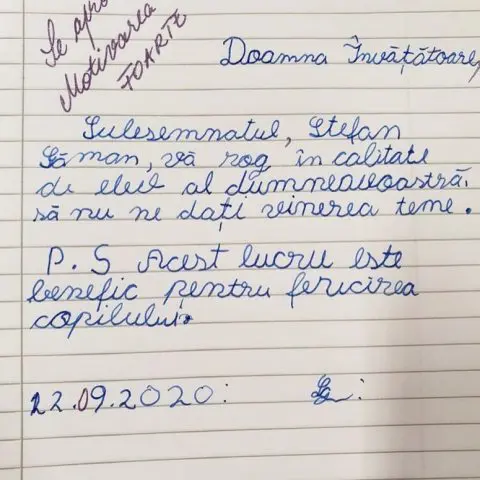 Se apro
Motivarea
FOARTE
Doamna Învățătoare,
Sulesemnatul, Ștefan
Șăman, vă rog în calitate
de elev al dumneavoastră,
să nu ne dați vinerea teme.
P. S Acest lucru este
benefic pentru fericirea
copilului.
22.09.2020: